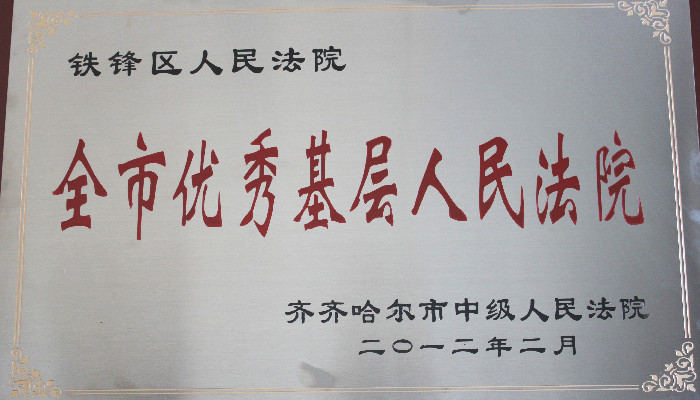 铁锋区人民法院
全市优秀基层人民法院
齐齐哈尔市中级人民法院
二〇一二年二月